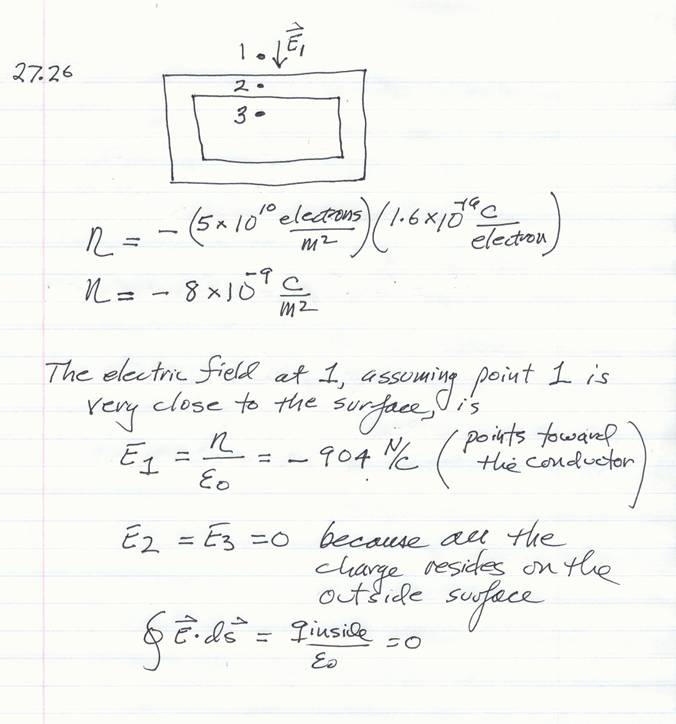 27.26
1 • ↓ E⃗₁
2 •
3 •
η = − (5 × 10¹⁰ electrons/m²)(1.6 × 10⁻¹⁹ C/electron)
η = − 8 × 10⁻⁹ C/m²
The electric field at 1, assuming point 1 is
very close to the surface, is
E₁ = η/ε₀ = − 904 N/C (points toward
the conductor)
E₂ = E₃ = 0 because all the
charge resides on the
outside surface
∮ E⃗ · ds⃗ = q inside/ε₀ = 0